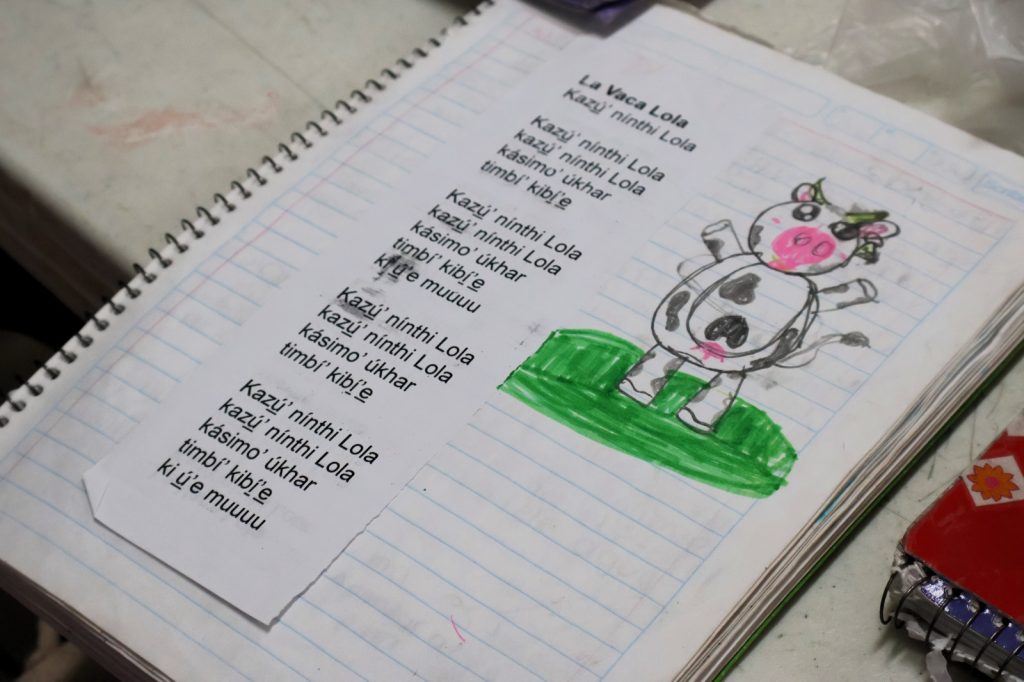 La Vaca Lola
Kazú̱' nínthi Lola
Kazú̱' nínthi Lola
kazú̱' nínthi Lola
kásimo' úkhar
timbí' kibí̱'e̱
Kazú̱' nínthi Lola
kazú̱' nínthi Lola
kásimo' úkhar
timbí' kibí̱'e̱
ki ú̱'e muuuu
Kazú̱' nínthi Lola
kazú̱' nínthi Lola
kásimo' úkhar
timbí' kibí̱'e̱
Kazú̱' nínthi Lola
kazú̱' nínthi Lola
kásimo' úkhar
timbí' kibí̱'e̱
ki ú̱'e muuuu